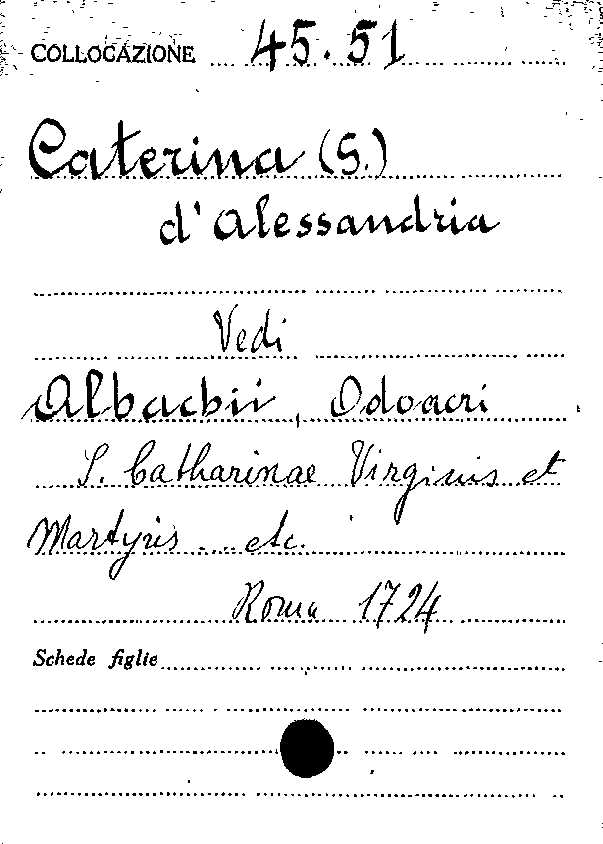 COLLOCAZIONE 45.51
Caterina (S.)
d'Alessandria
Vedi
Albachii, Odoacri
S. Catharinae Virginis et
Martyris ... etc.
Roma 1724
Schede figlie